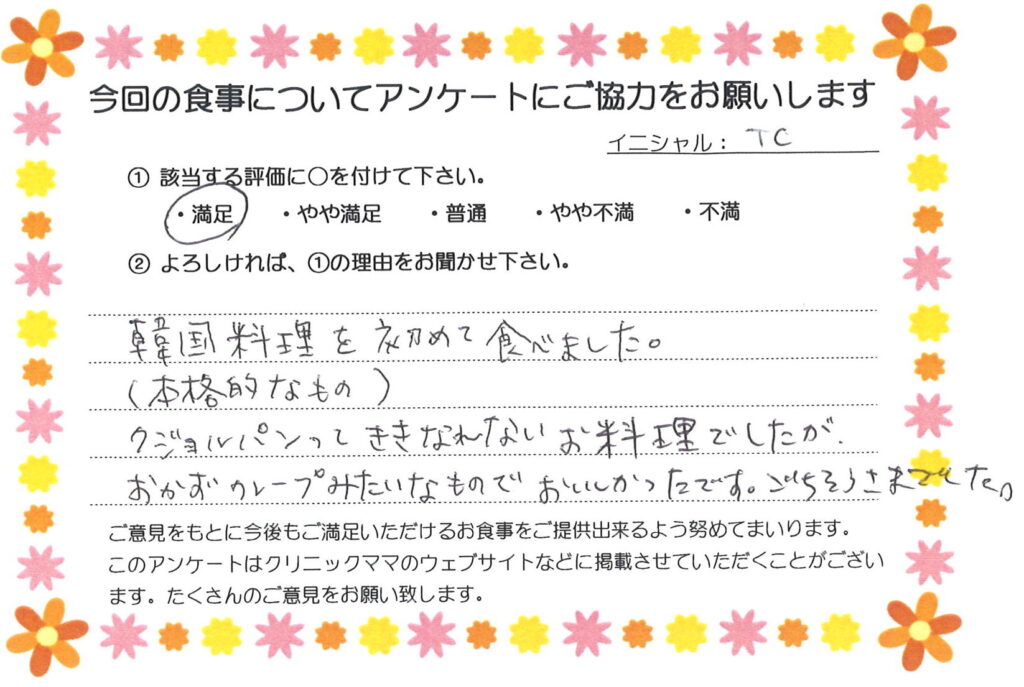 今回の食事についてアンケートにご協力をお願いします
イニシャル： TC
① 該当する評価に○を付けて下さい。
・満足 ・やや満足 ・普通 ・やや不満 ・不満
② よろしければ、①の理由をお聞かせ下さい。
韓国料理を初めて食べました。
（本格的なもの）
クジョルパンってききなれないお料理でしたが、
おかずクレープみたいなものでおいしかったです。ごちそうさまでした。
ご意見をもとに今後もご満足いただけるお食事をご提供出来るよう努めてまいります。
このアンケートはクリニックママのウェブサイトなどに掲載させていただくことがござい
ます。たくさんのご意見をお願い致します。